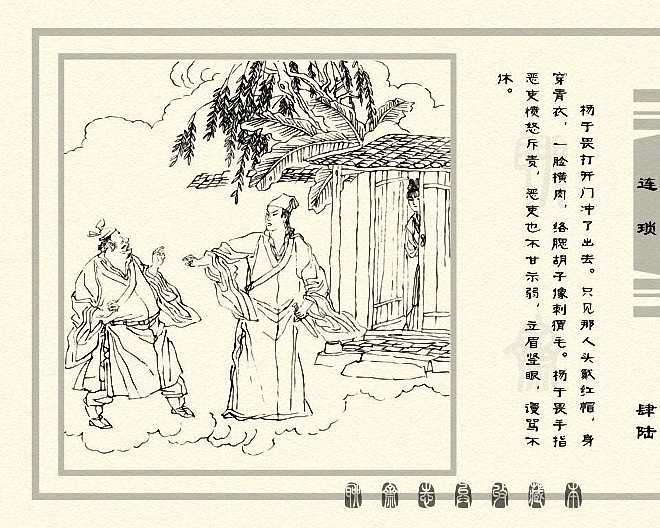 连琐
肆陆
杨于畏打开门冲了出去。只见那人头戴红帽，身
穿青衣，一脸横肉，络腮胡子像刺猬毛。杨于畏手指
恶吏愤怒斥责，恶吏也不甘示弱，立眉竖眼，谩骂不
休。
聊斋志异收藏本